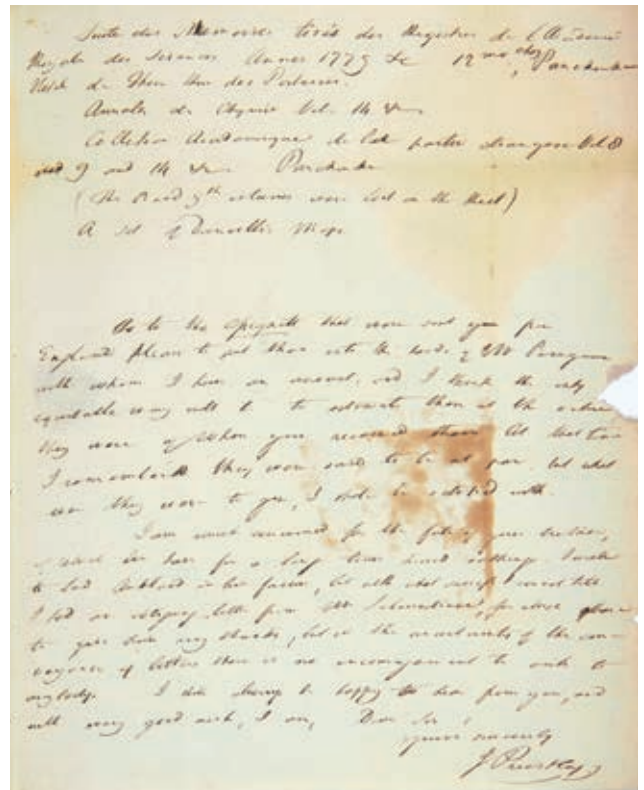 Suite des Memoires tirés des Registres de l'Academie
Royale des Sciences Annee 1779 &c 12mo chez Panckoucke
Hotel de Thou Rue des Poitevins.
Annales de Chymie Vol. 14 &c
Collection Academique de la partie etrangere Vol 8
and 9 and 14 &c Panckoucke
(The 8 and 9th volumes were lost in the Riot)
A set of Danville's Maps
As to the assignats that were sent you from
England please to put them into the hands of Mr Perregaux
with whom I have an account, and I think the only
equitable way will be to estimate them at the value
they were of when you received them. At that time
I remember they were said to be at par, but what
ever they were to you, I shall be satisfied with.
I am much concerned for the fate of your brother,
of whom we have for a long time heard nothing. I wrote
to Lord Auckland in his favour, but with what success
I had an obliging letter from M
to give him my thanks, but in the uncertainty of the con-
veyance of letters there is no encouragement to write to
anybody. I shall always be happy to hear from you, and
with every good wish, I am, Dear Sir,
yours sincerely
J Priestley